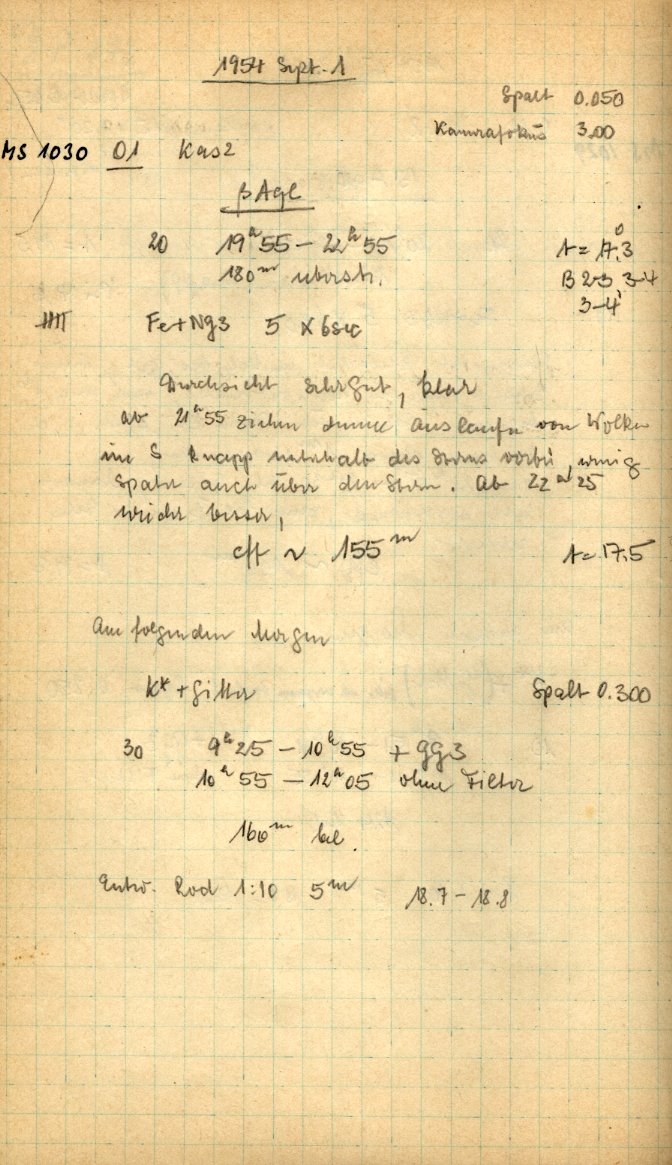 1954 Sept. 1
Spalt 0.050
Kamerafokus 3.00
MS 1030 01 Kas2
β Aql
20 19ʰ55 – 22ʰ55 t = 17.°3
180ᵐ überstr. B 2-3, 3-4
3-4
Fe+Ng3 5 x 6sec
Durchsicht sehr gut, klar
ab 21ʰ55 ziehen dünne Ausläufer von Wolken
im S knapp unterhalb des Sterns vorbei, wenig
später auch über den Stern. Ab 22ʰ25
wieder besser,
eff ~ 155ᵐ t = 17.5
Am folgenden Morgen
K* + Gitter Spalt 0.300
30 9ʰ25 – 10ʰ55 + gg3
10ʰ55 – 12ʰ05 ohne Filter
160ᵐ bel.
Entw. Rod 1:10 5ᵐ 18.7 – 18.8